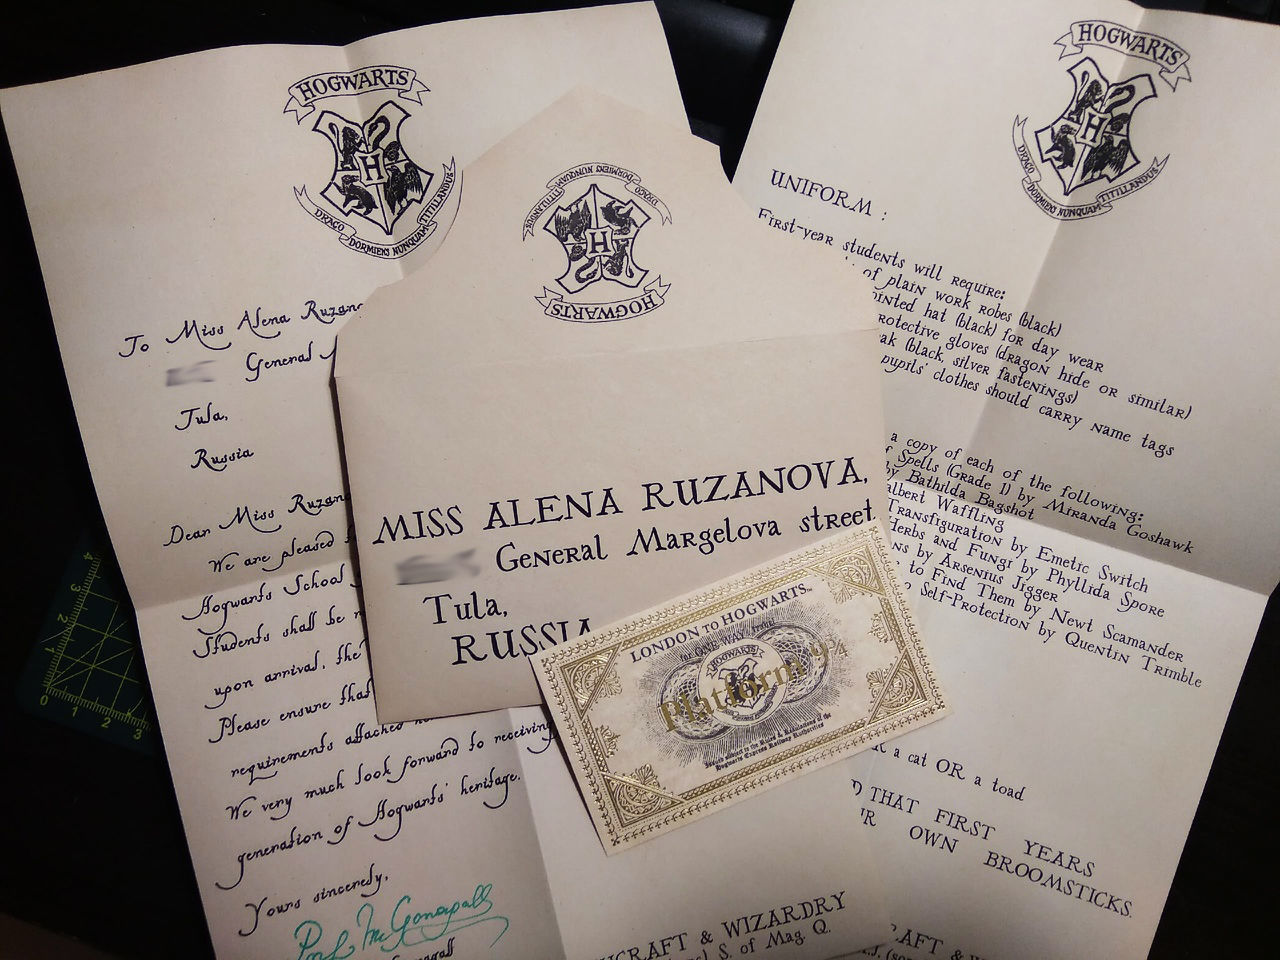 HOGWARTS
H
DRACO DORMIENS NUNQUAM TITILLANDUS
To Miss Alena
General
Tula,
Russia
Dear Miss
We are pleased
Hogwarts School
Students shall be
upon arrival, the
Please ensure that
requirements attached
We very much look forward to receiving
generation of Hogwarts' heritage.
Yours sincerely,
Prof. McGonagall
DRACO DORMIENS NUNQUAM TITILLANDUS
H
HOGWARTS
MISS ALENA RUZANOVA,
General Margelova street
Tula,
RUSSIA
LONDON TO HOGWARTS
for ONE WAY travel
HOGWARTS
Platform 9¾
Issued subject to the Rules & Regulations of the
Hogwarts Express Railway Authorities
HOGWARTS
H
DRACO DORMIENS NUNQUAM TITILLANDUS
UNIFORM :
First-year students will require:
of plain work robes (black)
hat (black) for day wear
gloves (dragon hide or similar)
(black, silver fastenings)
pupils' clothes should carry name tags
a copy of each of the following:
Spells (Grade 1) by Miranda Goshawk
by Bathilda Bagshot
Waffling
Transfiguration by Emetic Switch
Herbs and Fungi by Phyllida Spore
by Arsenius Jigger
to Find Them by Newt Scamander
Self-Protection by Quentin Trimble
a cat OR a toad
THAT FIRST YEARS
OWN BROOMSTICKS.
& WIZARDRY
S. of Mag. Q.
&